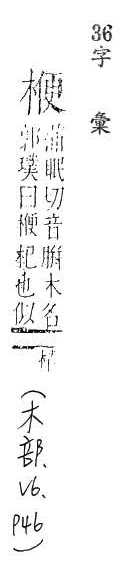 36字彙
楩
蒲眠切音胼木名
郭璞曰楩杞也似
梓
(木部、V6、P46)